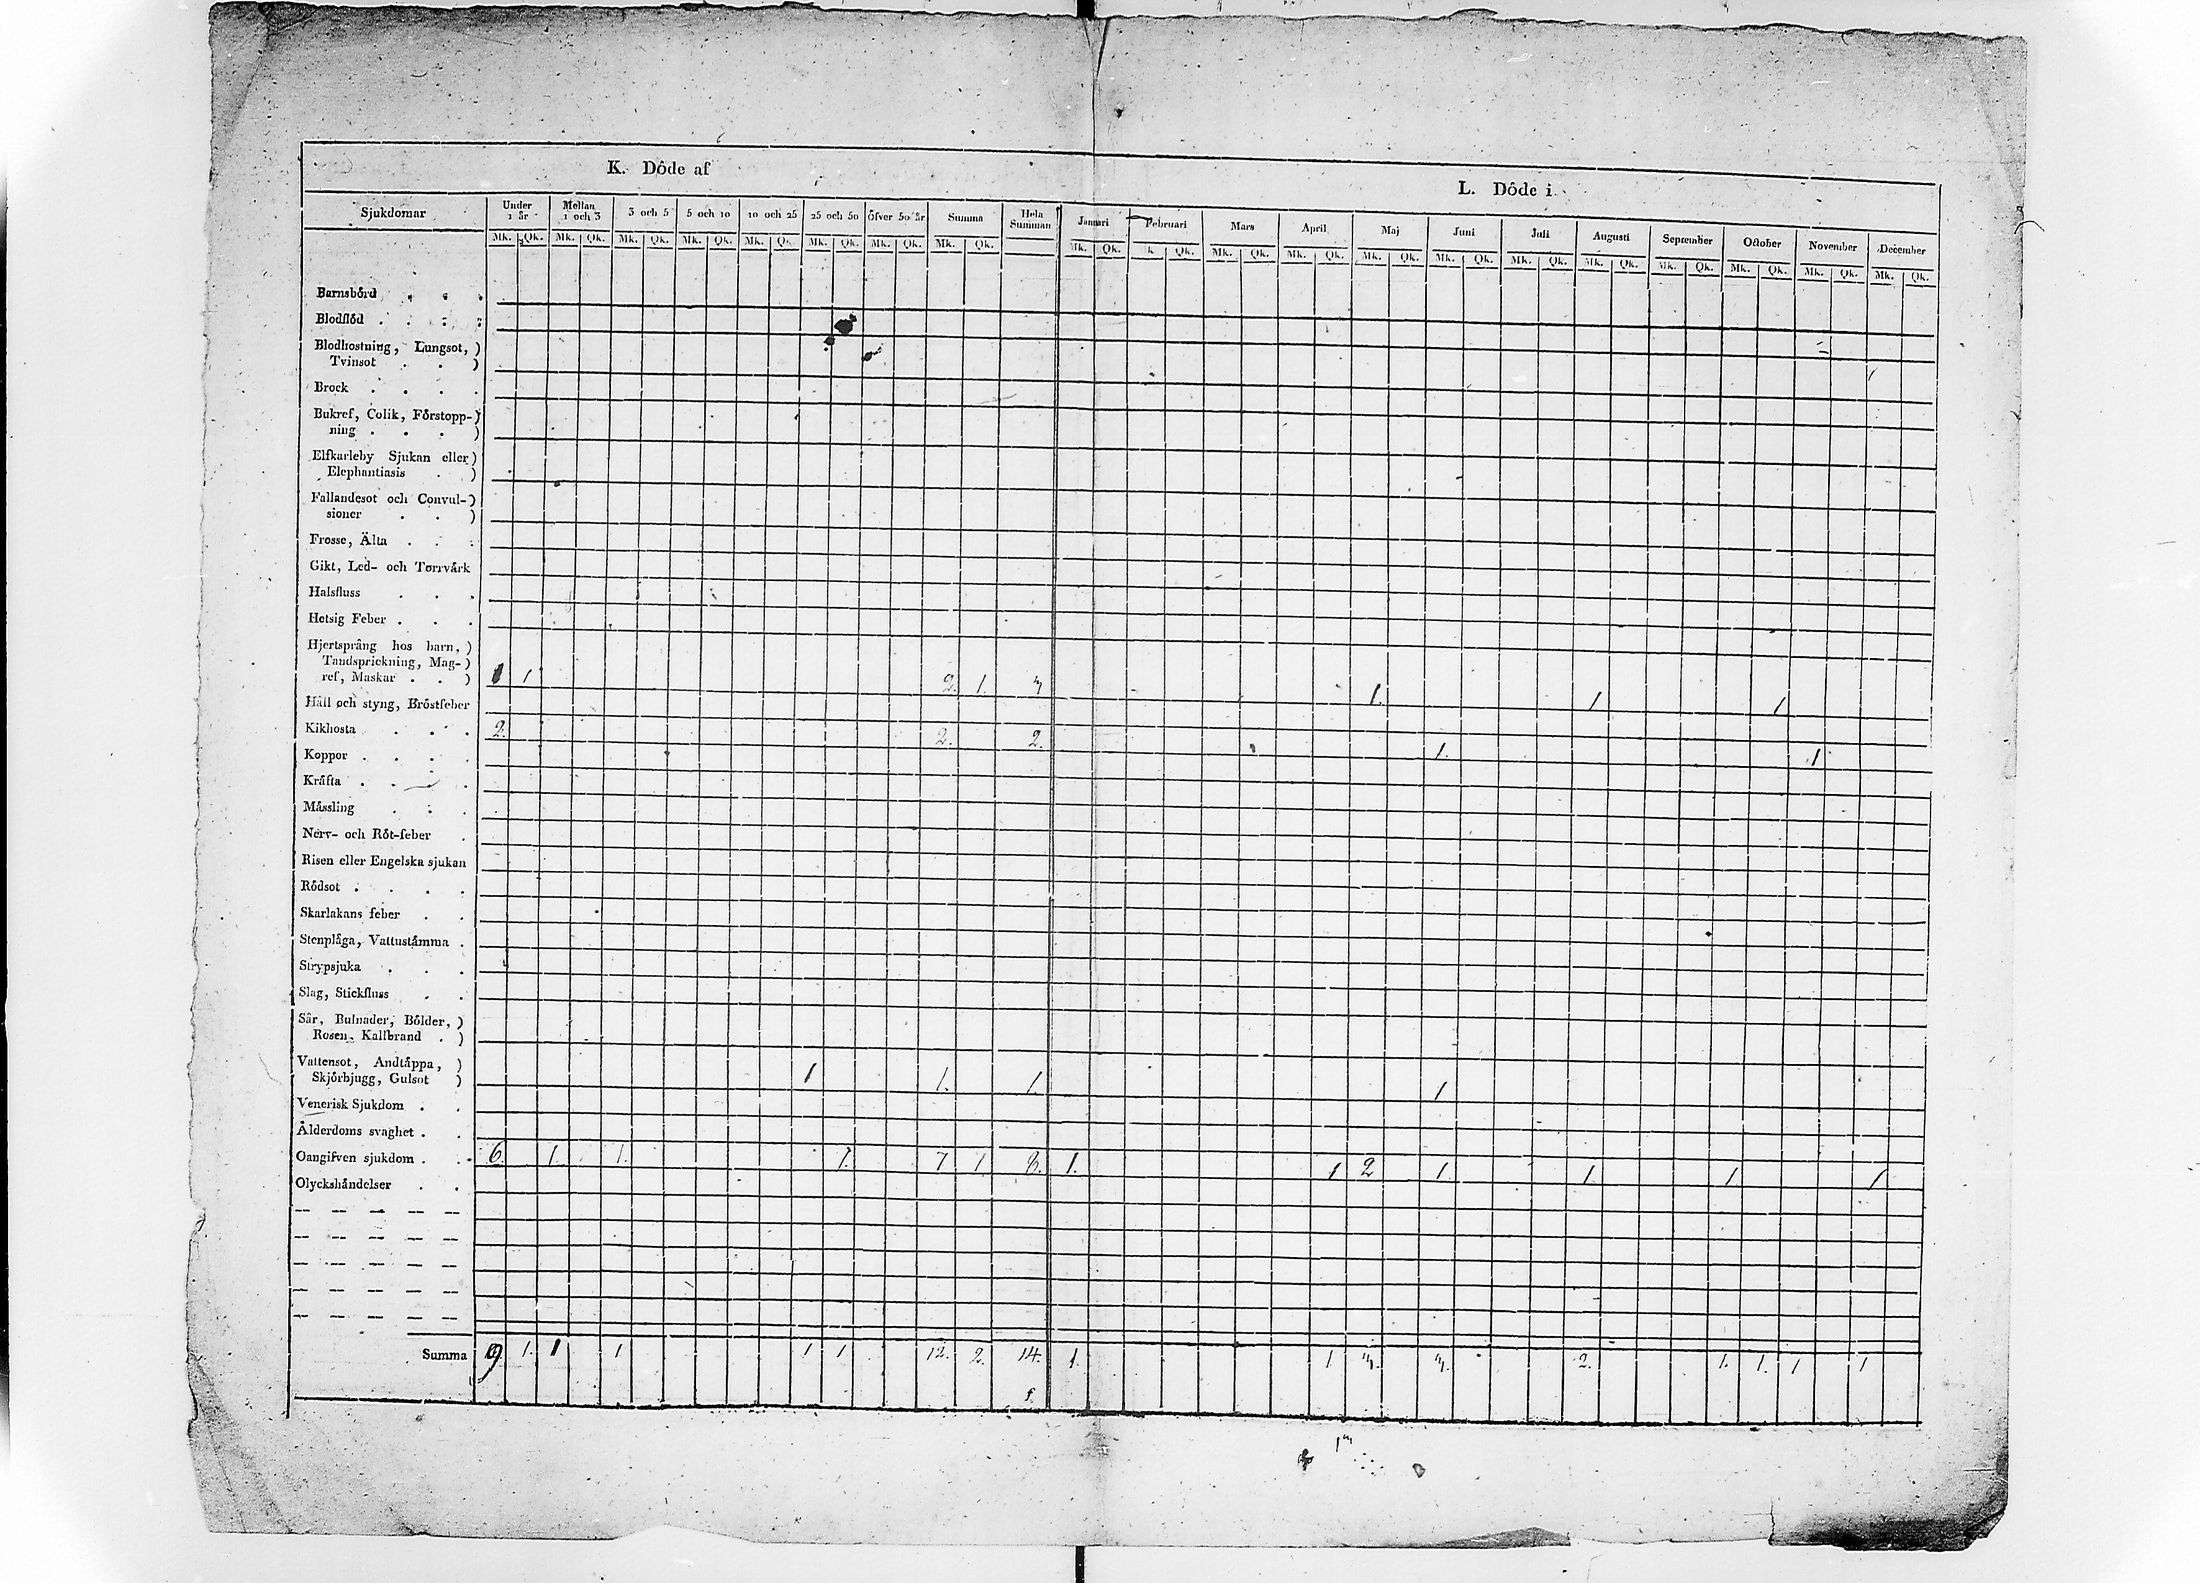 K. Dôde af
L. Dôde i
Sjukdomar Under 1 år Mellan 1 och 3 3 och 5 5 och 10 10 och 25 25 och 50 Öfver 50 år Summa Hela Summan Januari Februari Mars April Maj Juni Juli Augusti September October November December
Mk. Qk. Mk. Qk. Mk. Qk. Mk. Qk. Mk. Qk. Mk. Qk. Mk. Qk. Mk. Qk. Mk. Qk. k Qk. Mk. Qk. Mk. Qk. Mk. Qk. Mk. Qk. Mk. Qk. Mk. Qk. Mk. Qk. Mk. Qk. Mk. Qk. Mk. Qk.
Barnsbörd . . .
Blodflöd . . . .
Blodhostning, Lungsot, )
Tvinsot . . )
Brock . . . .
Bukref, Colik, Förstopp- )
ning . . . )
Elfkarleby Sjukan eller )
Elephantiasis . )
Fallandesot och Convul- )
sioner . . )
Frosse, Älta . . .
Gikt, Led- och Torrvärk
Halsfluss . . .
Hetsig Feber . . .
Hjertsprång hos barn, )
Tandsprickning, Mag- )
ref, Maskar . . ) 1 1 2. 1. 3 1. 1 1
Håll och styng, Bröstfeber
Kikhosta . . . 2. 2. 2. 1. 1
Koppor . . . .
Kräfta . . .
Mässling . . .
Nerv- och Röt-feber .
Risen eller Engelska sjukan
Rödsot . . . .
Skarlakans feber . .
Stenplåga, Vattustämma .
Strypsjuka . . .
Slag, Stickfluss . .
Sår, Bulnader, Bölder, )
Rosen, Kallbrand . )
Vattensot, Andtäppa, )
Skjörbjugg, Gulsot ) 1 1. 1. 1
Venerisk Sjukdom . .
Ålderdoms svaghet . .
Oangifven sjukdom . . 6. 1. 1. 1. 7 1 8. 1. 1 2 1. 1 1 1
Olyckshändelser . .
Summa 9 1. 1 1 1 1 12. 2. 14. 1. 1 3. 3. 2. 1. 1. 1 1